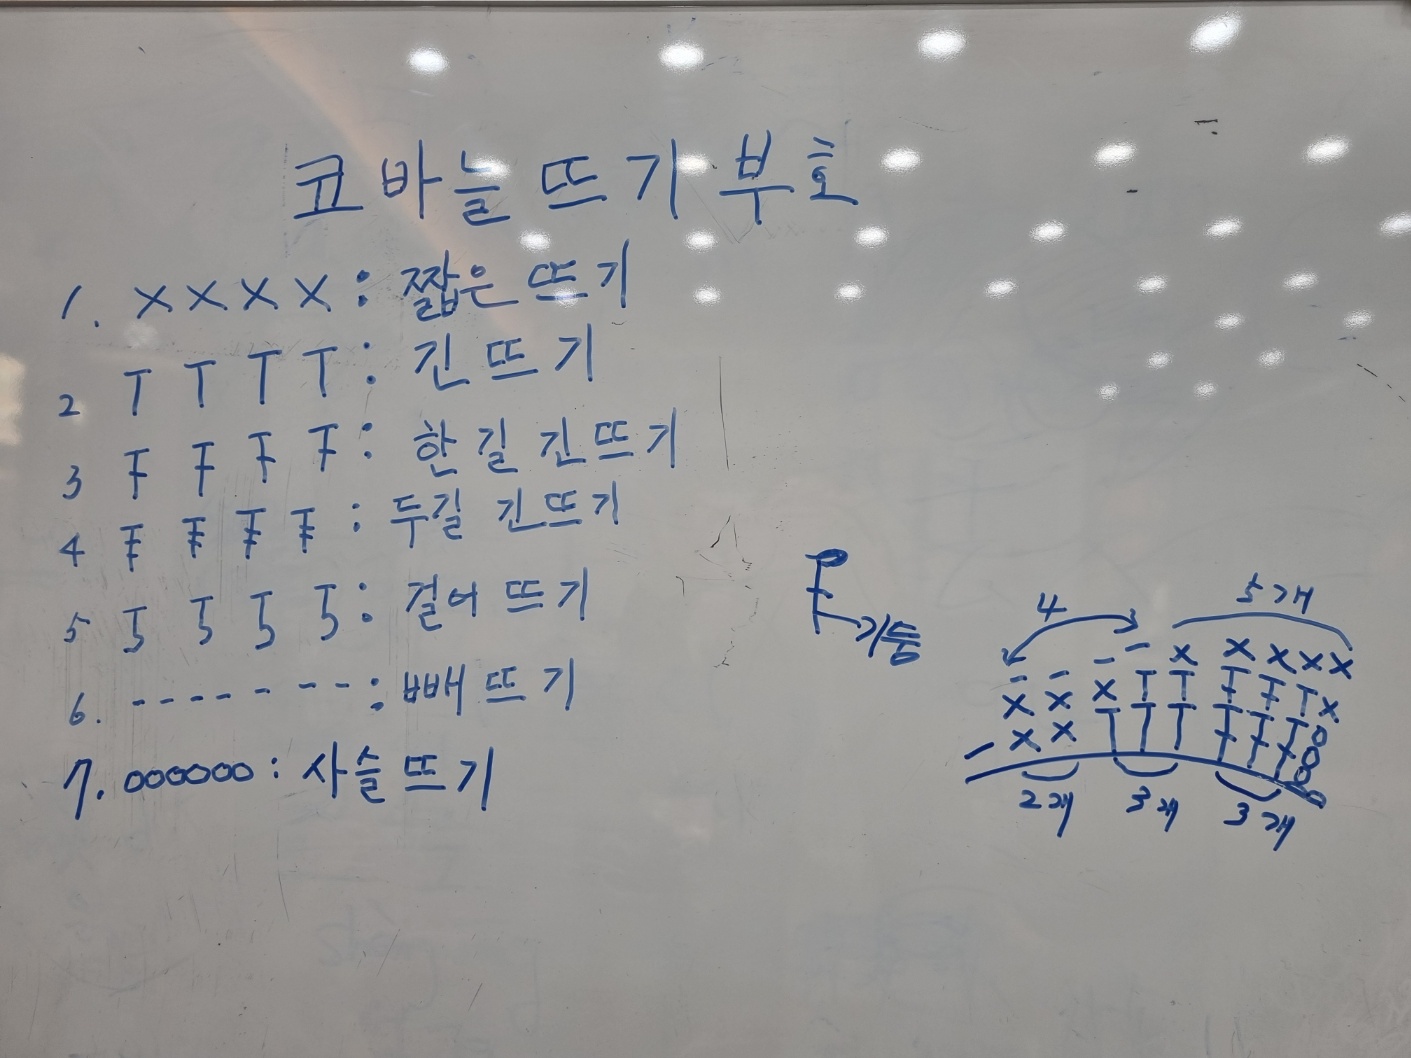 코바늘뜨기부호
1. ×××× : 짧은뜨기
2 T T T T : 긴뜨기
3 Ŧ Ŧ Ŧ Ŧ : 한길 긴뜨기
4 : 두길 긴뜨기
5 : 걸어 뜨기
6. - - - - - - - : 빼뜨기
7. oooooo : 사슬뜨기
기둥
4 5개
2개 3개 3개